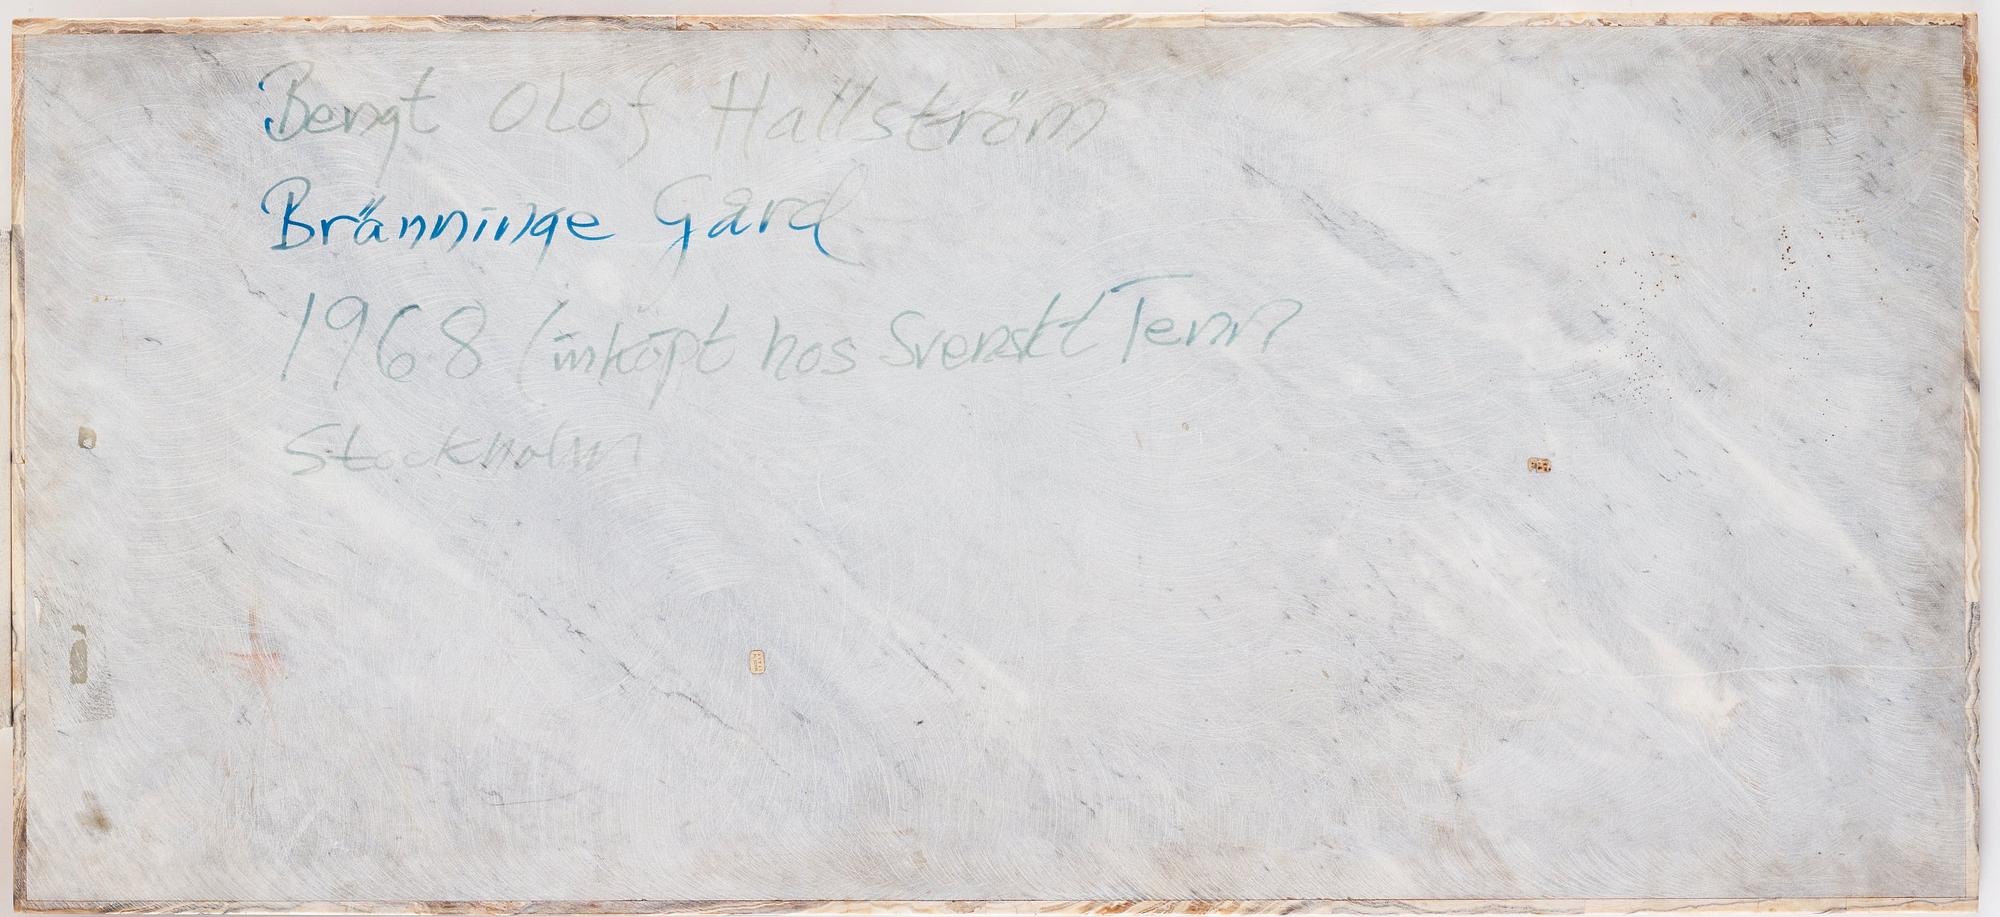 Bengt Olof Hallström
Bränninge Gård
1968 (inköpt hos Svenskt Tenn
Stockholm